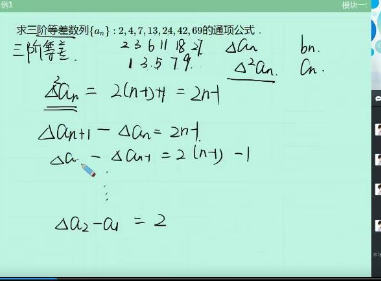 例1
模块一
求三阶等差数列{aₙ}:2,4,7,13,24,42,69的通项公式.
三阶等差
2 3 6 11 18 27 Δaₙ bₙ.
1 3.5 7 9. Δ²aₙ. Cₙ.
Δ²aₙ = 2(n-1)+1 = 2n-1
Δaₙ₊₁ - Δaₙ = 2n-1.
Δa - Δaₙ₋₁ = 2(n-1) - 1
⋮
Δa₂-a₁ = 2